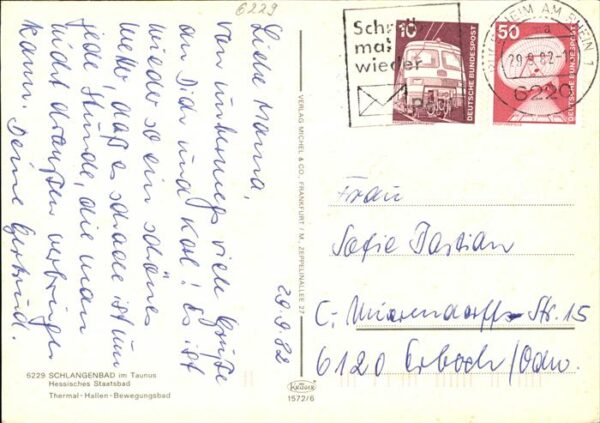 6229
Liebe Mama,
von unterwegs viele Grüße
an Dich und Karl! Es ist
wieder so ein schönes
Wetter, daß es schade ist um
jede Stunde, die man
nicht draußen verbringen
kann. Deine Gertrud.
29.9.82
6229 SCHLANGENBAD im Taunus
Hessisches Staatsbad
Thermal-Hallen-Bewegungsbad
VERLAG MICHEL & CO., FRANKFURT / M., ZEPPELINALLEE 27
Krüger
1572/6
Schreib
mal
wieder
Post
10
DEUTSCHE BUNDESPOST
50
DEUTSCHE BUNDESPOST
AM RHEIN 1
29.9.82
6220
Frau
Sofie Bastian
C.-Mierendorff-Str. 15
6120 Erbach/Odw.